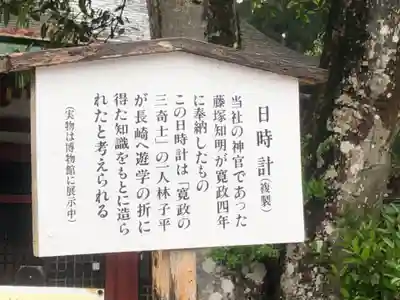 日時計（複製）
当社の神官であった
藤塚知明が寛政四年
に奉納したもの
この日時計は「寛政の
三奇士」の一人林子平
が長崎へ遊学の折に
得た知識をもとに造ら
れたと考えられる
（実物は博物館に展示中）